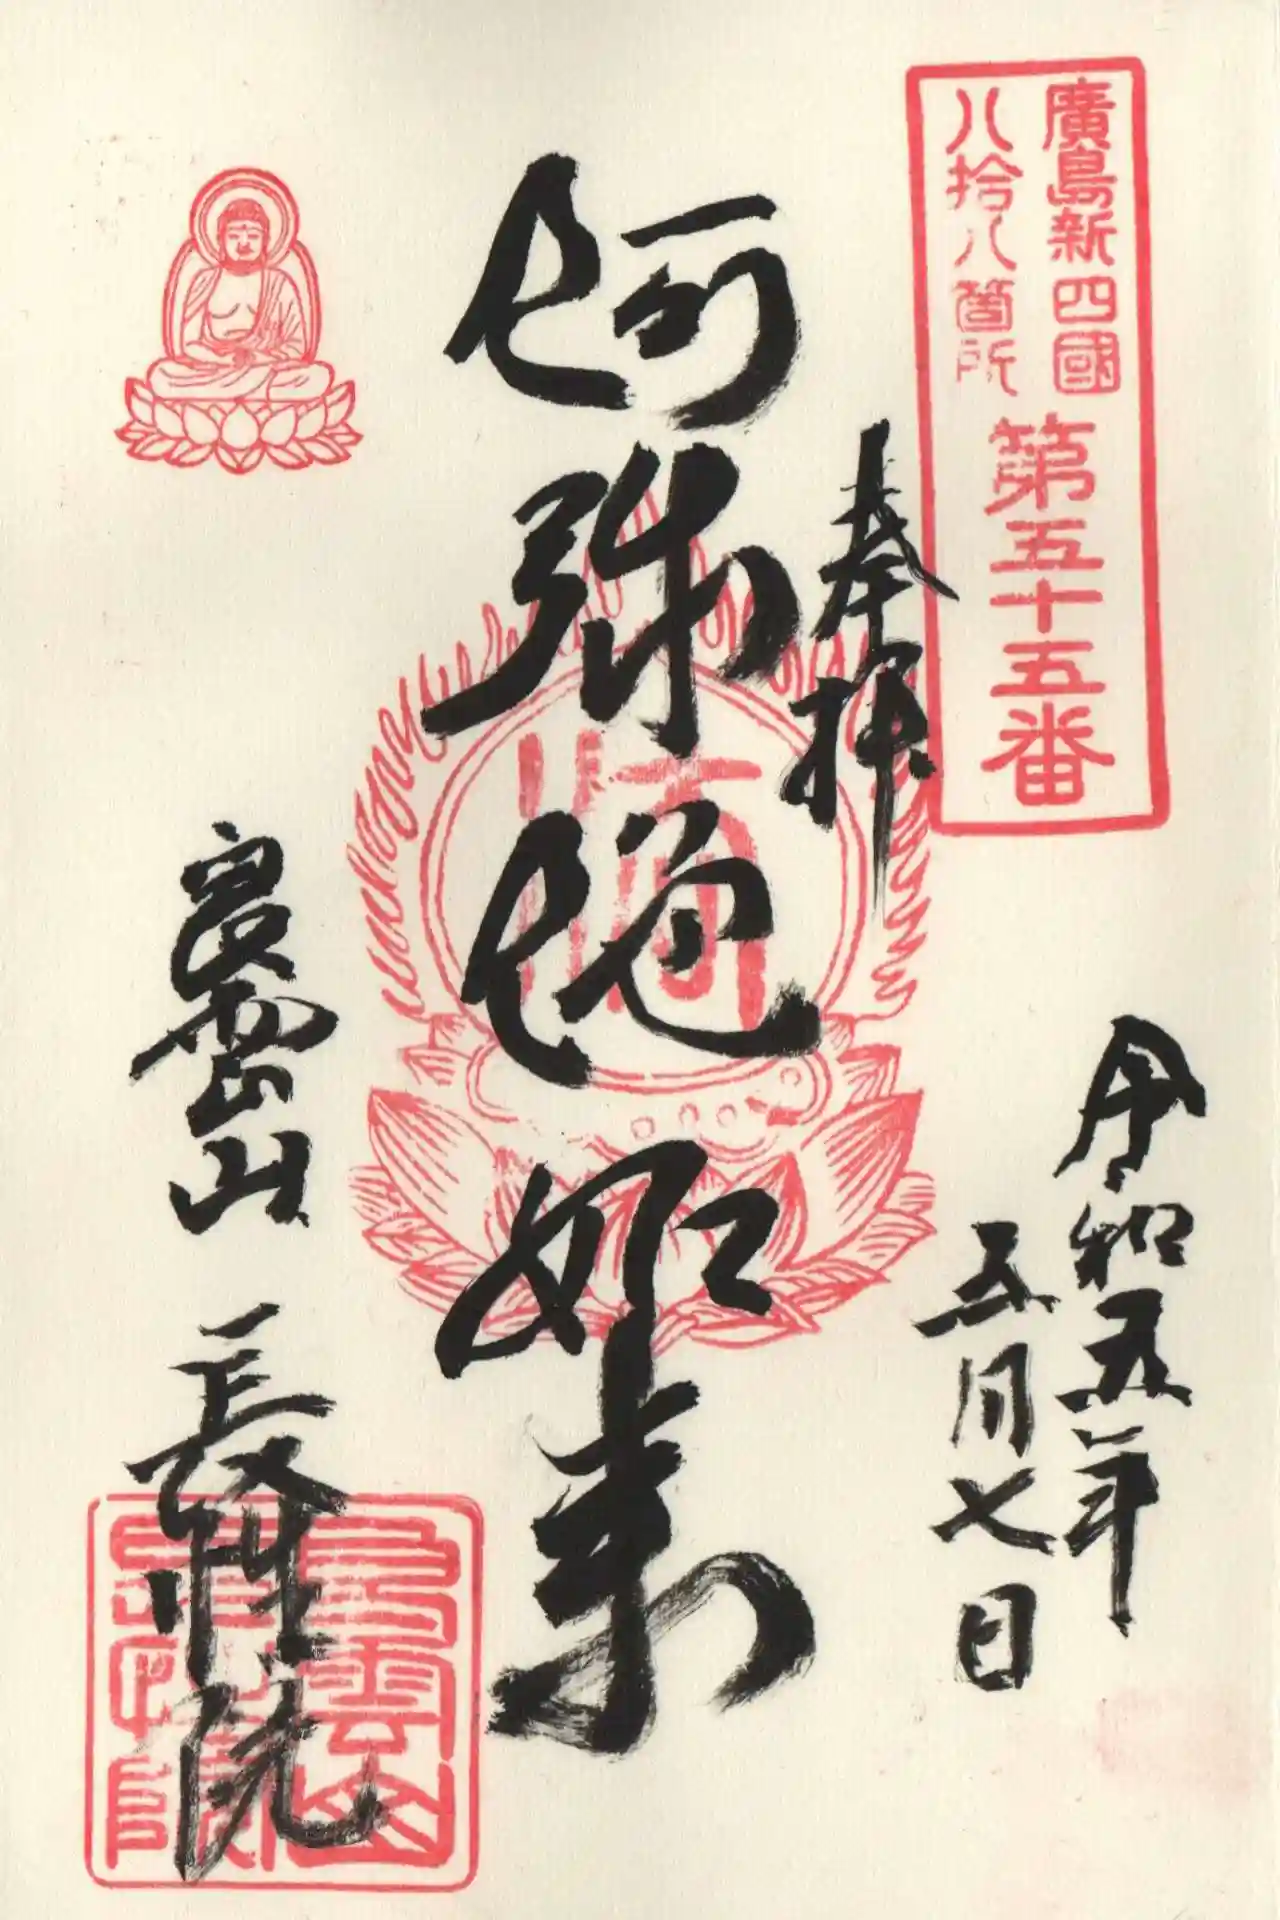 廣島新四國
八拾八箇所
第五十五番
奉拝
令和五年
五月七日
阿弥陀如来
山 長性院